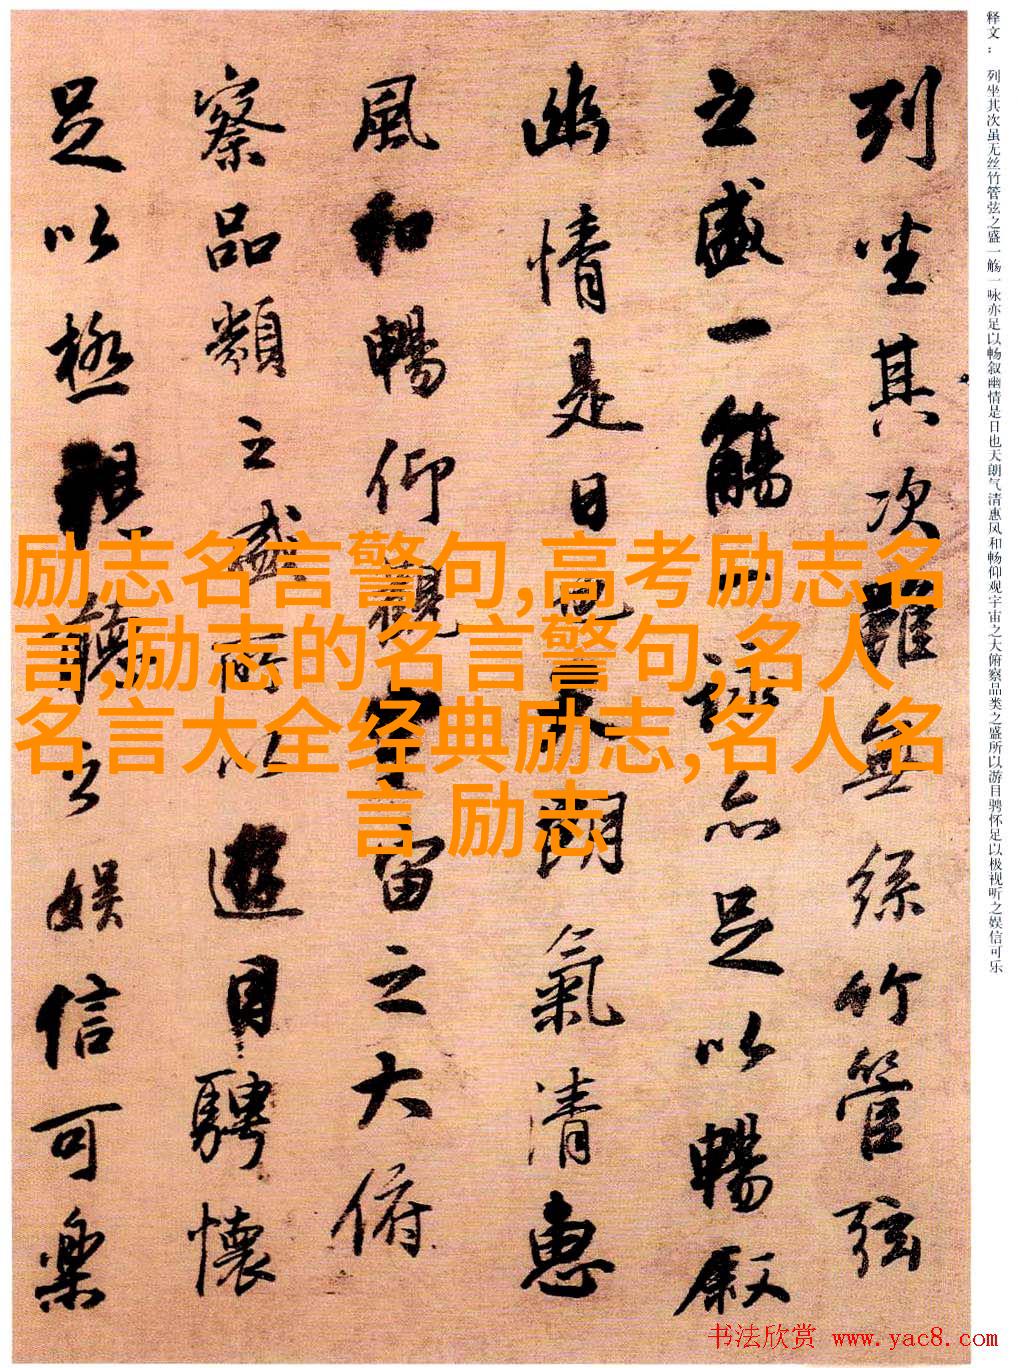 释文：列坐其次虽无丝竹管弦之盛一觞一咏亦足以畅叙幽情是日也天朗气清惠风和畅仰观宇宙之大俯察品类之盛所以游目骋怀足以极视听之娱信可乐
列坐其次雖無絲竹管弦
之盛一觴一詠亦足以暢叙
幽情是日也天朗氣清惠
風和暢仰觀宇宙之大俯
察品類之盛所以遊目騁懷
足以極視聽之娛信可樂
励志名言警句,高考励志名
言,励志的名言警句,名人
名言大全经典励志,名人名
言 励志
书法欣赏 www.yac8.com